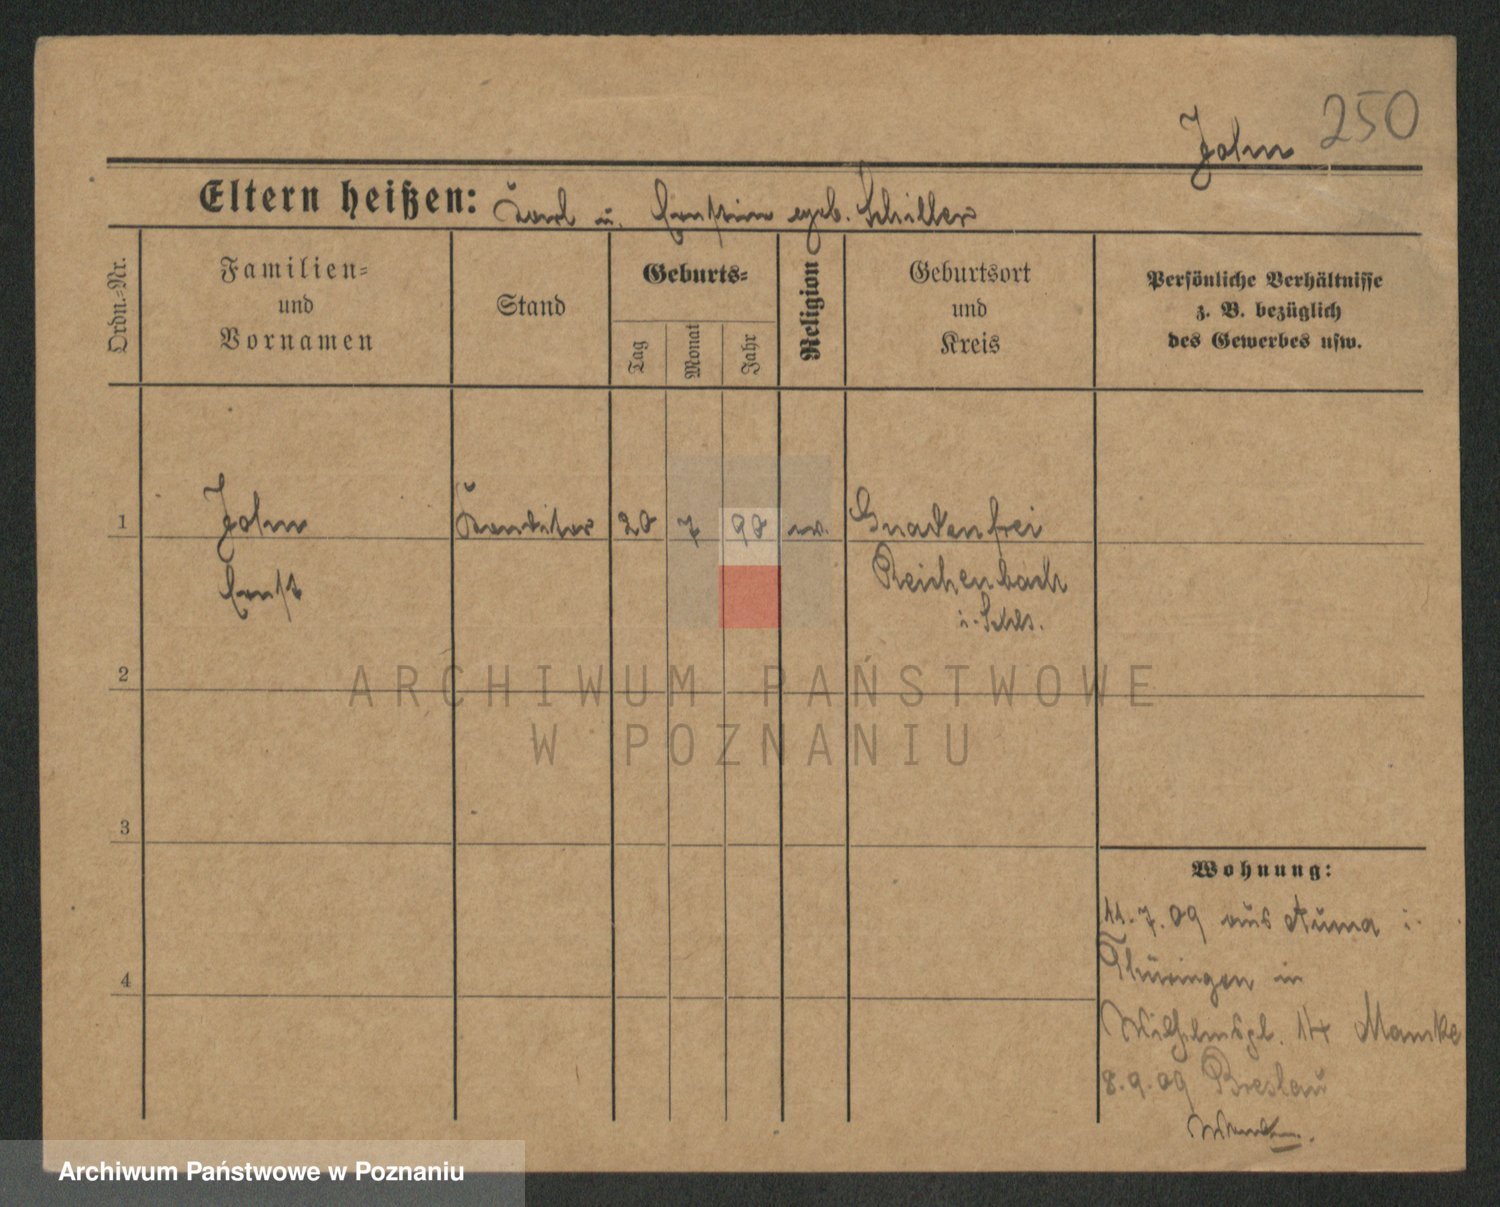 250
John
Eltern heißen: Karl u. Ernstine geb. Schiller
Ordn.-Nr.
Familien-
und
Vornamen
Stand
Geburts-
Tag
Monat
Jahr
Religion
Geburtsort
und
Kreis
Persönliche Verhältnisse
z. B. bezüglich
des Gewerbes usw.
1
John
Konditor
20
7
90
ev.
Gnadenfrei
Ernst
Reichenbach
i. Schls.
2
ARCHIWUM PAŃSTWOWE
W POZNANIU
3
Wohnung:
11. 7. 09 aus Auma i.
Thüringen in
4
Wilhelmspl. 14 Manke
8. 9. 09 Breslau
Archiwum Państwowe w Poznaniu